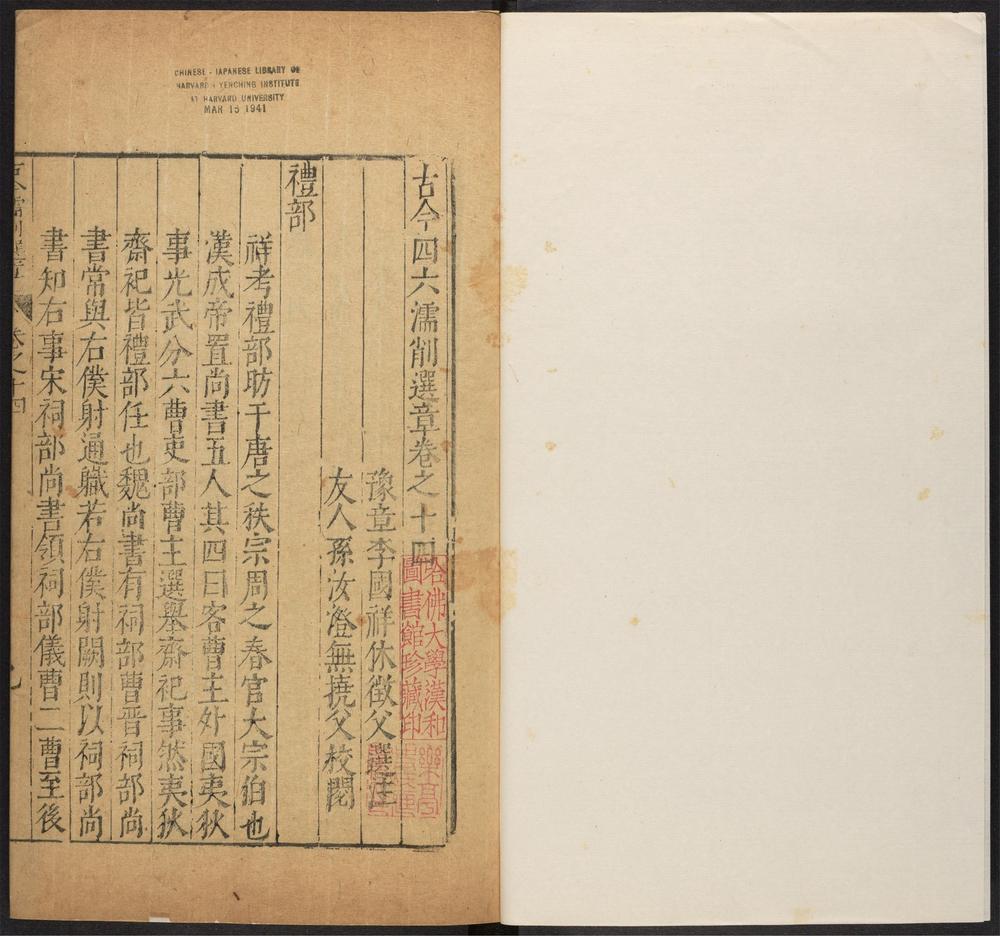 CHINESE - JAPANESE LIBRARY OF
HARVARD - YENCHING INSTITUTE
AT HARVARD UNIVERSITY
MAR 15 1941
古今四六濡削選章卷之十四
豫章李國祥休徵父選註
友人孫汝澄無撓父校閱
禮部
祥考禮部昉于唐之秩宗周之春官大宗伯也
漢成帝置尚書五人其四曰客曹主外國夷狄
事光武分六曹吏部曹主選舉齋祀事然夷狄
齋祀皆禮部任也魏尚書有祠部曹晋祠部尚
書常與右僕射通職若右僕射闕則以祠部尚
書知右事宋祠部尚書領祠部儀曹二曹至後
卷之十四
哈佛大學漢和
圖書館珍藏印